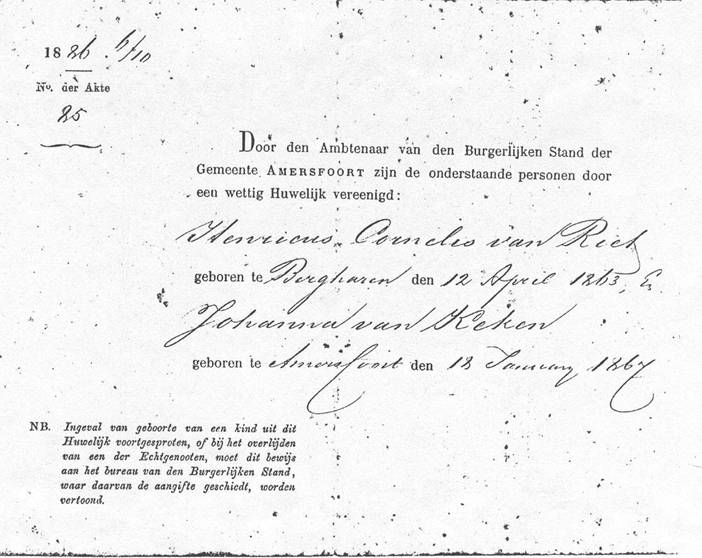 1886 6/10
No. der Akte
25
Door den Ambtenaar van den Burgerlijken Stand der
Gemeente AMERSFOORT zijn de onderstaande personen door
een wettig Huwelijk vereenigd:
Henricus Cornelis van Riet
geboren te Bergharen den 12 April 1863, En
Johanna van Keken
geboren te Amersfoort den 18 January 1867
NB. Ingeval van geboorte van een kind uit dit
Huwelijk voortgesproten, of bij het overlijden
van een der Echtgenooten, moet dit bewijs
aan het bureau van den Burgerlijken Stand,
waar daarvan de aangifte geschiedt, worden
vertoond.